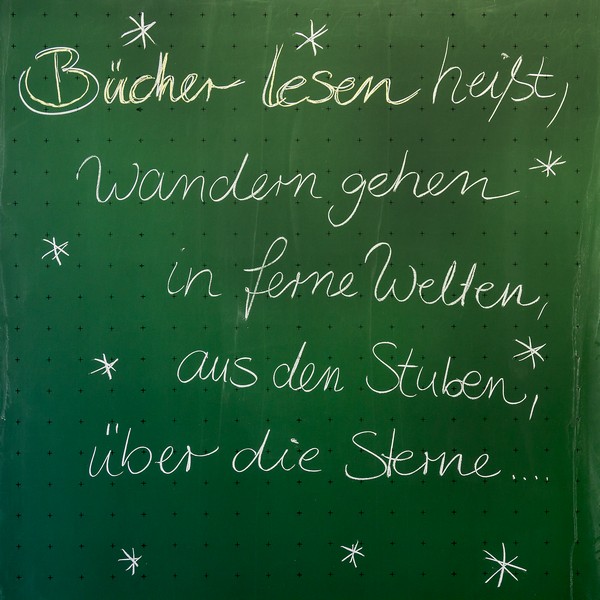 Bücher lesen heißt,
wandern gehen
in ferne Welten,
aus den Stuben,
über die Sterne....